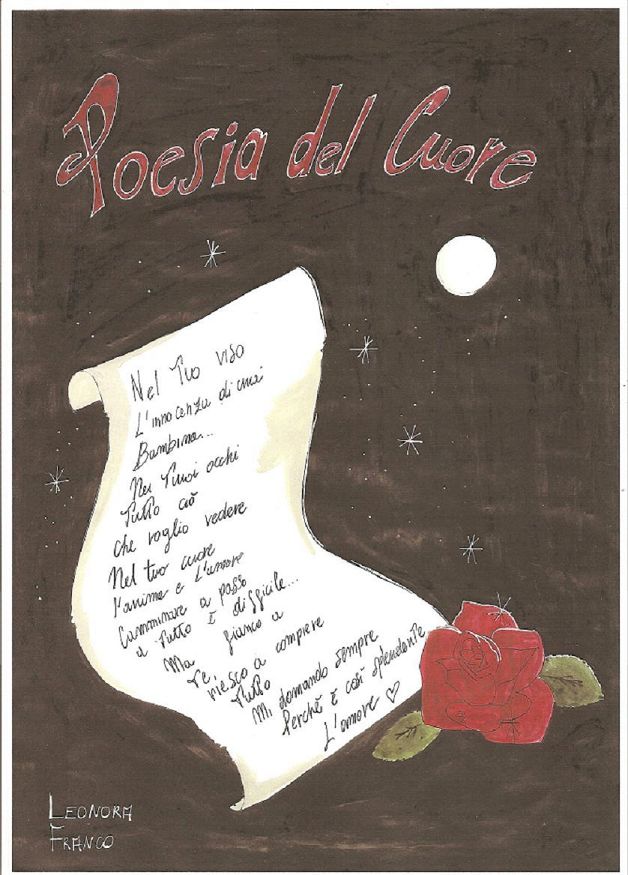 Poesia del Cuore
Nel Tuo viso
L'innocenza di una
Bambina...
Nei Tuoi occhi
Tutto ciò
che voglio vedere
Nel tuo cuore
l'anima e L'amore
Camminare a passo
a Tutto È difficile...
Ma fianco a
Te
riesco a compiere
Tutto
Mi domando sempre
Perchè È così splendente
L'amore
LEONORA
FRANCO